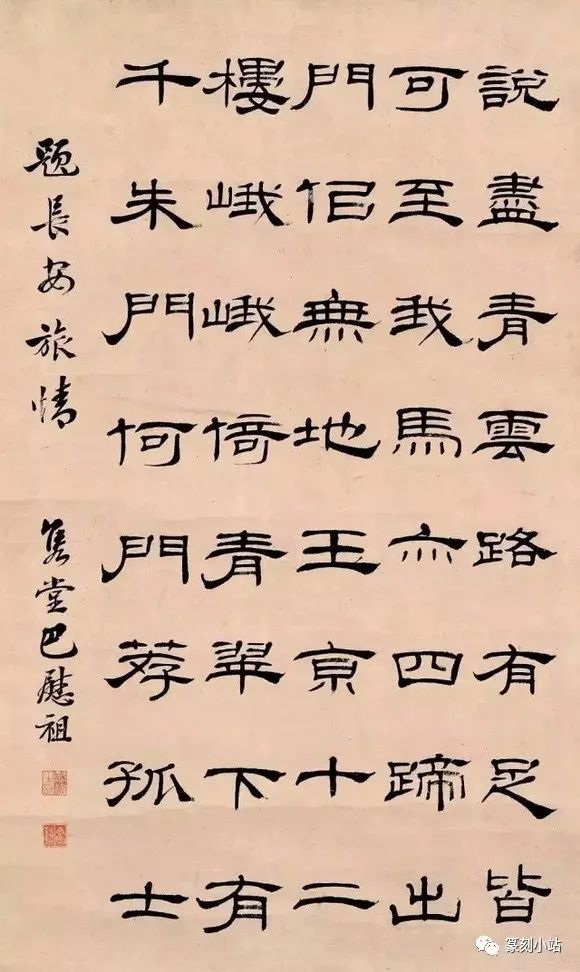 說盡青雲路有足皆
可至我馬亦四蹄出
門佀無地玉亰十二
樓峨峨倚青翠下有
千朱門何門荐孤士
題長安旅情 雋堂巴慰祖
篆刻小站